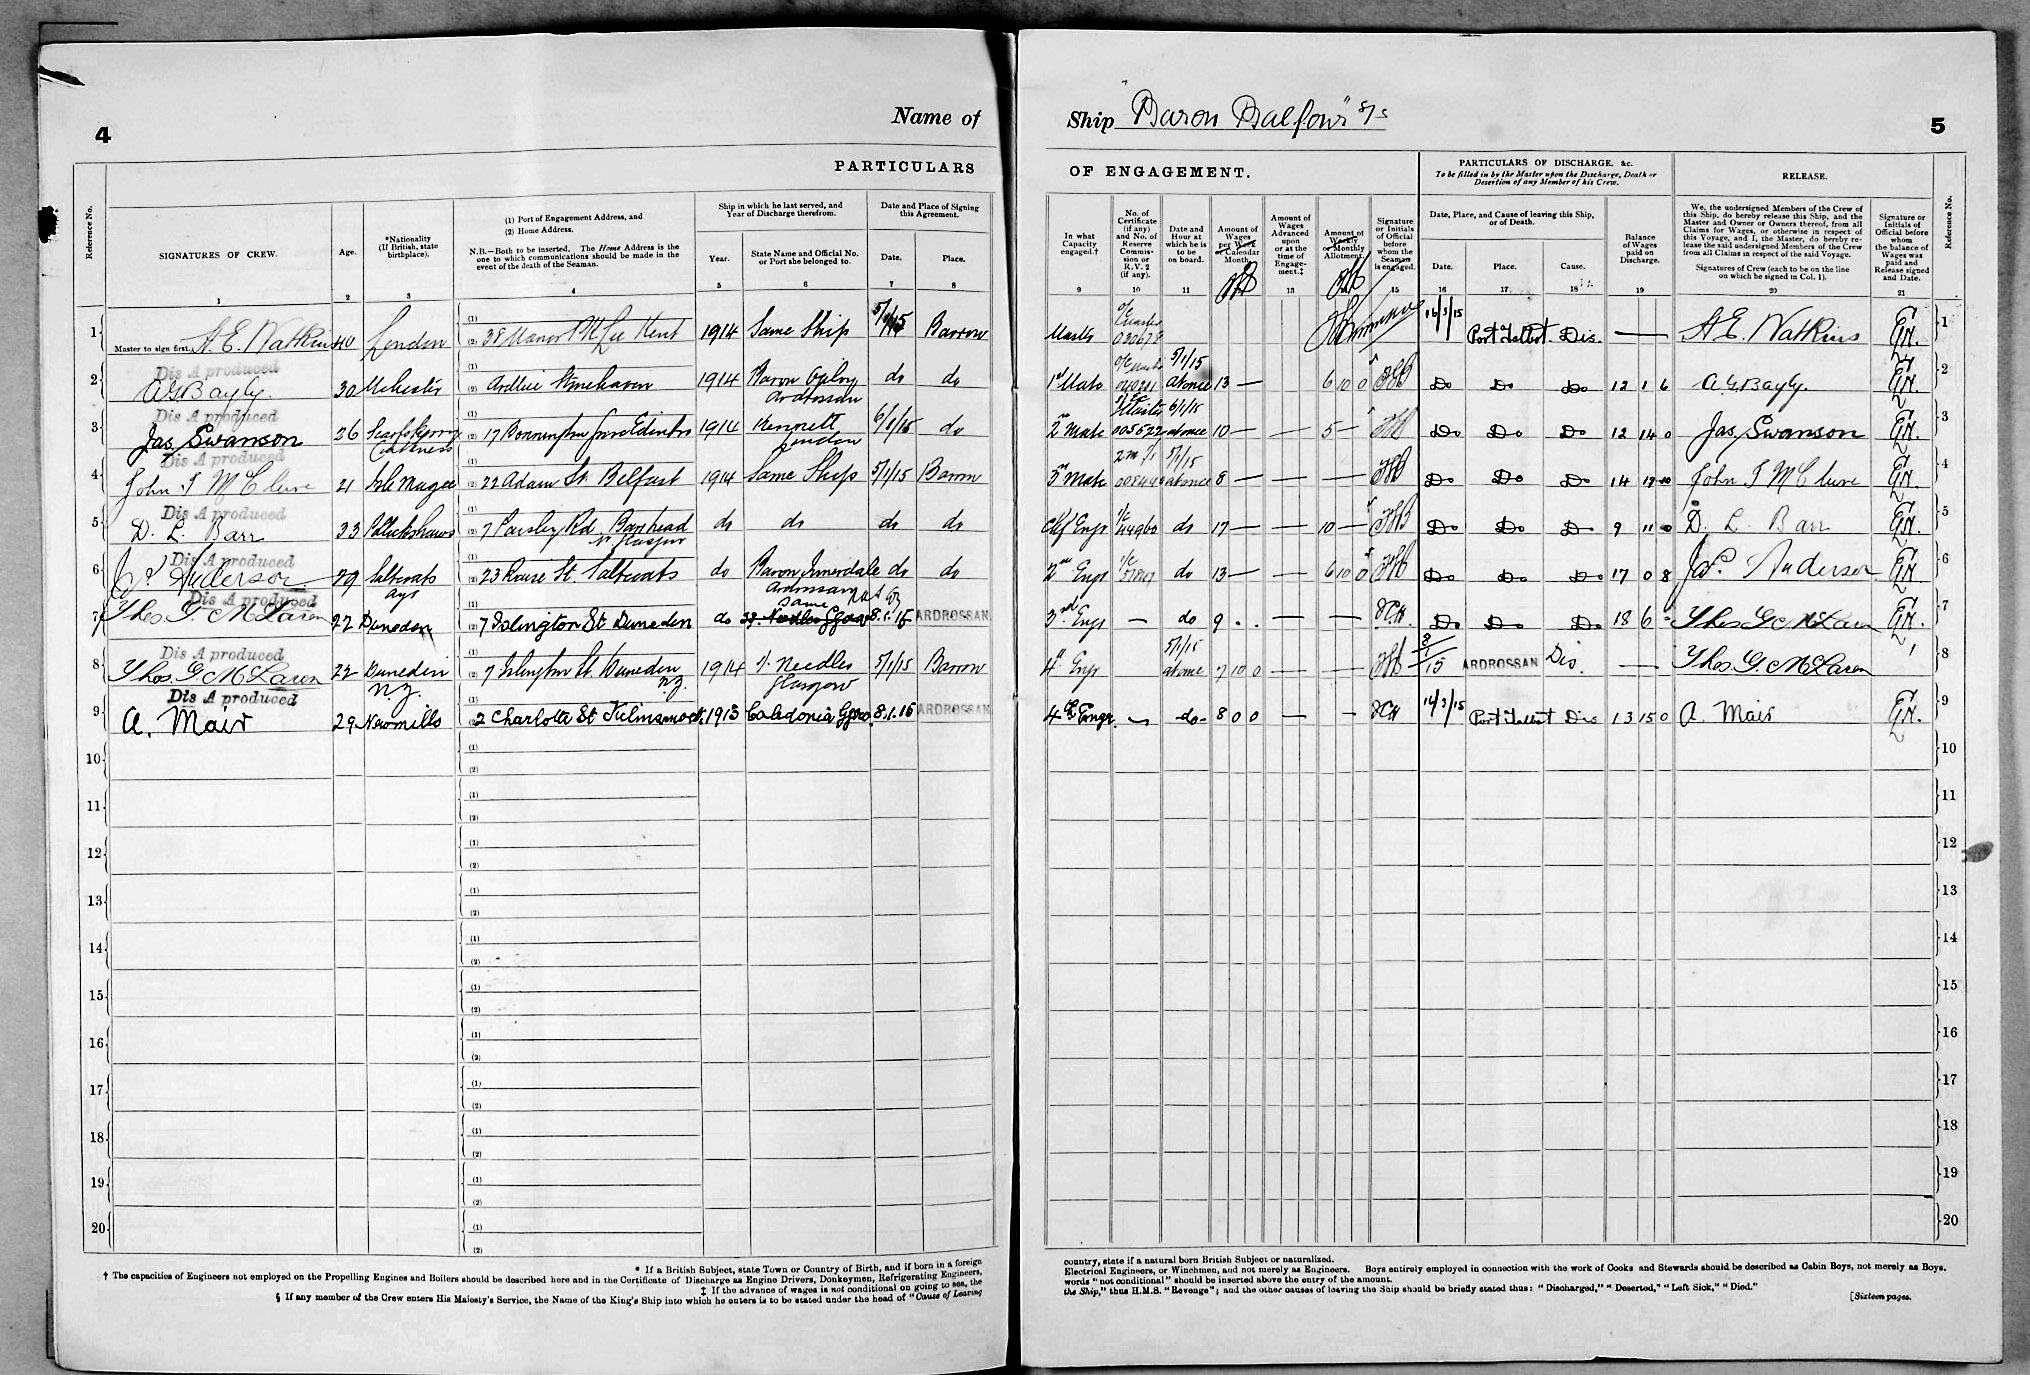 4
Name of
Ship "Baron Balfour" S/S
5
PARTICULARS
OF ENGAGEMENT.
PARTICULARS OF DISCHARGE, &c.
To be filled in by the Master upon the Discharge, Death or
Desertion of any Member of his Crew.
RELEASE.
Reference No.
SIGNATURES OF CREW.
Age.
*Nationality
(If British, state
birthplace).
(1) Port of Engagement Address, and
(2) Home Address.
N.B.—Both to be inserted. The Home Address is the
one to which communications should be made in the
event of the death of the Seaman.
Ship in which he last served, and
Year of Discharge therefrom.
Year.
State Name and Official No.
or Port she belonged to.
Date and Place of Signing
this Agreement.
Date.
Place.
In what
Capacity
engaged.†
No. of
Certificate
(if any)
and No. of
Reserve
Commis-
sion or
R.V. 2
(if any).
Date and
Hour at
which he is
to be
on board.
Amount of
Wages
per Week
or Calendar
Month.
Amount of
Wages
Advanced
upon
or at the
time of
Engage-
ment.‡
Amount of
Weekly
or Monthly
Allotment.
Signature
or Initials
of Official
before
whom the
Seaman
is engaged.
Date, Place, and Cause of leaving this Ship,
or of Death.
Date.
Place.
Cause.
Balance
of Wages
paid on
Discharge.
We, the undersigned Members of the Crew of
this Ship, do hereby release this Ship, and the
Master and Owner or Owners thereof, from all
Claims for Wages, or otherwise in respect of
this Voyage, and I, the Master, do hereby re-
lease the said undersigned Members of the Crew
from all Claims in respect of the said Voyage.
Signatures of Crew (each to be on the line
on which he signed in Col. 1).
Signature or
Initials of
Official before
whom
the balance of
Wages was
paid and
Release signed
and Date.
Reference No.
1 2 3 4 5 6 7 8 9 10 11 13 15 16 17 18 19 20 21
1 Master to sign first. A. E. Watkins 40 London (1) (2) 38 Manor Pk Lee Kent 1914 Same Ship 5/1/15 Barrow Master 16/3/15 Port Talbot. Dis. — A. E. Watkins 1
Dis A produced
2 A G Bayly. 30 (1) (2) Ardlui Stonehaven 1914 Baron Ogilvy Ardrossan do do 1st Mate 5/1/15 at once 13 — 6 10 0 Do Do Do 12 1 6 A G Bayly. 2
Dis A produced
3 Jas Swanson 26 Caithness (1) (2) 1914 Kennett London 6/1/15 do 2nd Mate 005522 6/1/15 at once 10 — — 5 — Do Do Do 12 14 0 Jas Swanson 3
Dis A produced
4 John T McClure 21 Isle Magee (1) (2) 22 Adam St. Belfast 1914 Same Ship 5/1/15 Barrow 3rd Mate 5/1/15 at once 8 — — — Do Do Do 14 John T McClure 4
Dis A produced
5 D. L. Barr 33 Pollockshaws (1) (2) 7 Paisley Rd Barrhead Nr. Glasgow do do do do Chf Engr 44960 do 17 — — 10 — Do Do Do 9 11 0 D. L. Barr 5
Dis A produced
6 Jas. Anderson 29 Saltcoats Ayr (1) (2) 23 St. Saltcoats do Baron Innerdale Ardrossan do do 2nd Engr do 13 — — 6 10 0 Do Do Do 17 0 8 Jas. Anderson 6
Dis A produced
7 Thos G. McLaren 22 Dunedin (1) (2) 7 Islington St Dunedin do Same Needles Glasgow 8.1.15 ARDROSSAN. 3rd Engr — do 9 . . — — Do Do Do 18 6 Thos G McLaren 7
Dis A produced
8 Thos. G. McLaren 22 Dunedin N.Z. (1) (2) 7 Islington St. Dunedin N.Z. 1914 Needles Glasgow 5/1/15 Barrow 4th Engr 5/1/15 at once 7 10 0 — — 8/1/15 ARDROSSAN Dis. — Thos. G. McLaren 8
Dis A produced
9 A. Mair 29 Newmills (1) (2) 2 Charlotte St Kilmarnock. 1913 Caledonia Glasgow 8.1.15 ARDROSSAN. 4th Engr. — do 8 0 0 — — 16/3/15 Port Talbot Dis 13 15 0 A. Mair 9
10 (1) (2) 10
11 (1) (2) 11
12 (1) (2) 12
13 (1) (2) 13
14 (1) (2) 14
15 (1) (2) 15
16 (1) (2) 16
17 (1) (2) 17
18 (1) (2) 18
19 (1) (2) 19
20 (1) (2) 20
* If a British Subject, state Town or Country of Birth, and if born in a foreign
country, state if a natural born British Subject or naturalized.
† The capacities of Engineers not employed on the Propelling Engines and Boilers should be described here and in the Certificate of Discharge as Engine Drivers, Donkeymen, Refrigerating Engineers,
Electrical Engineers, or Winchmen, and not merely as Engineers. Boys entirely employed in connection with the work of Cooks and Stewards should be described as Cabin Boys, not merely as Boys.
‡ If the advance of wages is not conditional on going to sea, the
words "not conditional" should be inserted above the entry of the amount.
§ If any member of the Crew enters His Majesty's Service, the Name of the King's Ship into which he enters is to be stated under the head of "Cause of Leaving
the Ship," thus H.M.S. "Revenge"; and the other causes of leaving the Ship should be briefly stated thus: "Discharged," "Deserted," "Left Sick," "Died."
[Sixteen pages.